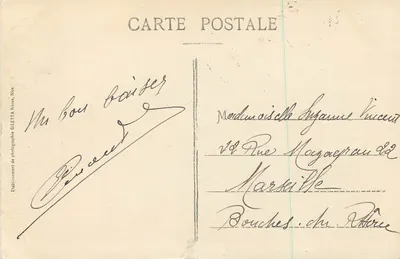 CARTE POSTALE
Un bon baiser
Mademoiselle Suzanne Vincent
22 Rue Mazagran 22
Marseille
Bouches-du-Rhône
Etablissement de photographie GILETTA frères, Nice.